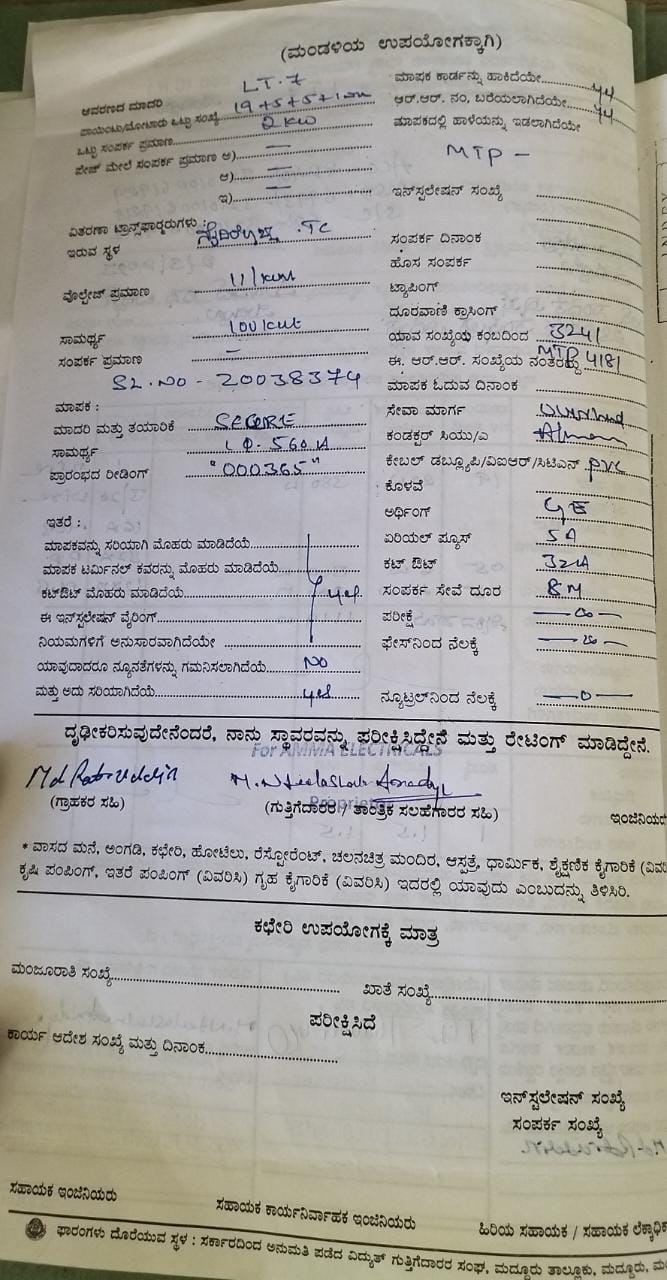 (ಮಂಡಳಿಯ ಉಪಯೋಗಕ್ಕಾಗಿ)
ಆವರಣದ ಮಾದರಿ LT.7
ಪಾಯಿಂಟು/ಮೋಟಾರು ಒಟ್ಟು ಸಂಖ್ಯೆ 19+5+5+1
ಒಟ್ಟು ಸಂಪರ್ಕ ಪ್ರಮಾಣ 2 KW
ಫೇಜ್ ಮೇಲೆ ಸಂಪರ್ಕ ಪ್ರಮಾಣ ಅ) —
ಆ) —
ಇ) —
ವಿತರಣಾ ಟ್ರಾನ್ಸ್‌ಫಾರ್ಮರುಗಳು :
ಇರುವ ಸ್ಥಳ .TC
ವೋಲ್ಟೇಜ್ ಪ್ರಮಾಣ
ಸಾಮರ್ಥ್ಯ
ಸಂಪರ್ಕ ಪ್ರಮಾಣ —
SL.NO - 20038374
ಮಾಪಕ :
ಮಾದರಿ ಮತ್ತು ತಯಾರಿಕೆ SECURE
ಸಾಮರ್ಥ್ಯ
ಪ್ರಾರಂಭದ ರೀಡಿಂಗ್ "000365"
ಇತರೆ :
ಮಾಪಕವನ್ನು ಸರಿಯಾಗಿ ಮೊಹರು ಮಾಡಿದೆಯೆ
ಮಾಪಕ ಟರ್ಮಿನಲ್ ಕವರನ್ನು ಮೊಹರು ಮಾಡಿದೆಯೆ
ಕಟ್‌ಔಟ್ ಮೊಹರು ಮಾಡಿದೆಯೆ yes
ಈ ಇನ್‌ಸ್ಟಲೇಷನ್ ವೈರಿಂಗ್
ನಿಯಮಗಳಿಗೆ ಅನುಸಾರವಾಗಿದೆಯೇ
ಯಾವುದಾದರೂ ನ್ಯೂನತೆಗಳನ್ನು ಗಮನಿಸಲಾಗಿದೆಯೆ NO
ಮತ್ತು ಅದು ಸರಿಯಾಗಿದೆಯೆ yes
ಮಾಪಕ ಕಾರ್ಡನ್ನು ಹಾಕಿದೆಯೇ
ಆರ್.ಆರ್. ನಂ, ಬರೆಯಲಾಗಿದೆಯೇ
ಮಾಪಕದಲ್ಲಿ ಹಾಳೆಯನ್ನು ಇಡಲಾಗಿದೆಯೇ
MTP —
ಇನ್‌ಸ್ಟಲೇಷನ್ ಸಂಖ್ಯೆ
ಸಂಪರ್ಕ ದಿನಾಂಕ
ಹೊಸ ಸಂಪರ್ಕ
ಟ್ಯಾಪಿಂಗ್
ದೂರವಾಣಿ ಕ್ರಾಸಿಂಗ್
ಯಾವ ಸಂಖ್ಯೆಯ ಕಂಬದಿಂದ 3241
ಈ. ಆರ್.ಆರ್. ಸಂಖ್ಯೆಯ ನಂತರದ್ದು MTP 4181
ಮಾಪಕ ಓದುವ ದಿನಾಂಕ
ಸೇವಾ ಮಾರ್ಗ
ಕಂಡಕ್ಟರ್ ಸಿಯು/ಎ
ಕೇಬಲ್ ಡಬ್ಲ್ಯೂಪಿ/ವಿಐಆರ್/ಸಿಟಿಎಸ್ PVC
ಕೊಳವೆ
ಅರ್ಥಿಂಗ್
ಏರಿಯಲ್ ಪ್ಯೂಸ್ 5A
ಕಟ್ ಔಟ್ 32A
ಸಂಪರ್ಕ ಸೇವೆ ದೂರ 8M
ಪರೀಕ್ಷೆ — ∞ —
ಫೇಸ್‌ನಿಂದ ನೆಲಕ್ಕೆ — ∞ —
ನ್ಯೂಟ್ರಲ್‌ನಿಂದ ನೆಲಕ್ಕೆ — 0 —
ದೃಢೀಕರಿಸುವುದೇನೆಂದರೆ, ನಾನು ಸ್ಥಾವರವನ್ನು ಪರೀಕ್ಷಿಸಿದ್ದೇನೆ ಮತ್ತು ರೇಟಿಂಗ್ ಮಾಡಿದ್ದೇನೆ.
For AMMA ELECTRICALS
(ಗ್ರಾಹಕರ ಸಹಿ) (ಗುತ್ತಿಗೆದಾರರ / ತಾಂತ್ರಿಕ ಸಲಹೆಗಾರರ ಸಹಿ) ಇಂಜಿನಿಯರ
* ವಾಸದ ಮನೆ, ಅಂಗಡಿ, ಕಛೇರಿ, ಹೋಟೆಲು, ರೆಸ್ಟೋರೆಂಟ್, ಚಲನಚಿತ್ರ ಮಂದಿರ, ಆಸ್ಪತ್ರೆ, ಧಾರ್ಮಿಕ, ಶೈಕ್ಷಣಿಕ ಕೈಗಾರಿಕೆ (ವಿವರಿ
ಕೃಷಿ ಪಂಪಿಂಗ್, ಇತರೆ ಪಂಪಿಂಗ್ (ವಿವರಿಸಿ) ಗೃಹ ಕೈಗಾರಿಕೆ (ವಿವರಿಸಿ) ಇದರಲ್ಲಿ ಯಾವುದು ಎಂಬುದನ್ನು ತಿಳಿಸಿರಿ.
ಕಛೇರಿ ಉಪಯೋಗಕ್ಕೆ ಮಾತ್ರ
ಮಂಜೂರಾತಿ ಸಂಖ್ಯೆ ಖಾತೆ ಸಂಖ್ಯೆ
ಪರೀಕ್ಷಿಸಿದೆ
ಕಾರ್ಯ ಆದೇಶ ಸಂಖ್ಯೆ ಮತ್ತು ದಿನಾಂಕ
ಇನ್‌ಸ್ಟಲೇಷನ್ ಸಂಖ್ಯೆ
ಸಂಪರ್ಕ ಸಂಖ್ಯೆ
ಸಹಾಯಕ ಇಂಜಿನಿಯರು ಸಹಾಯಕ ಕಾರ್ಯನಿರ್ವಾಹಕ ಇಂಜಿನಿಯರು ಹಿರಿಯ ಸಹಾಯಕ / ಸಹಾಯಕ ಲೆಕ್ಕಾಧಿಕ
ಫಾರಂಗಳು ದೊರೆಯುವ ಸ್ಥಳ : ಸರ್ಕಾರದಿಂದ ಅನುಮತಿ ಪಡೆದ ವಿದ್ಯುತ್ ಗುತ್ತಿಗೆದಾರರ ಸಂಘ, ಮದ್ದೂರು ತಾಲ್ಲೂಕು, ಮದ್ದೂರು,